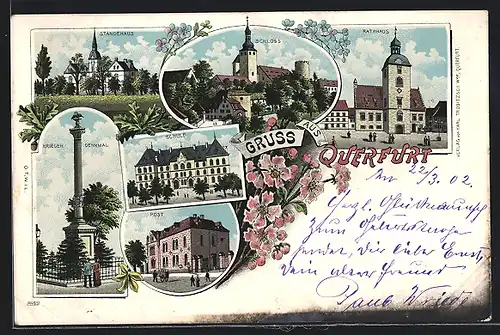 STÄNDEHAUS
SCHLOSS
RATHAUS
KRIEGER DENKMAL
SCHULE
POST
GRUSS
AUS
QUERFURT
22/3. 02
Herzl. Glückwunsch
zum Geburtstage
sendet, Dir lieber Ernst,
Dein alter Freund
Paul